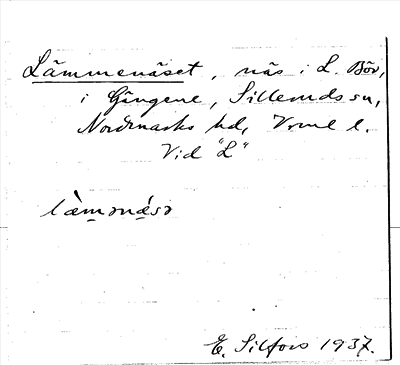 Lämmenäset, näs i L. Bör,
i Gängene, Sillerud sn,
Nordmarks hd, Vrml l.
Vid "L"
làmənǽsə
E. Silfors 1937.